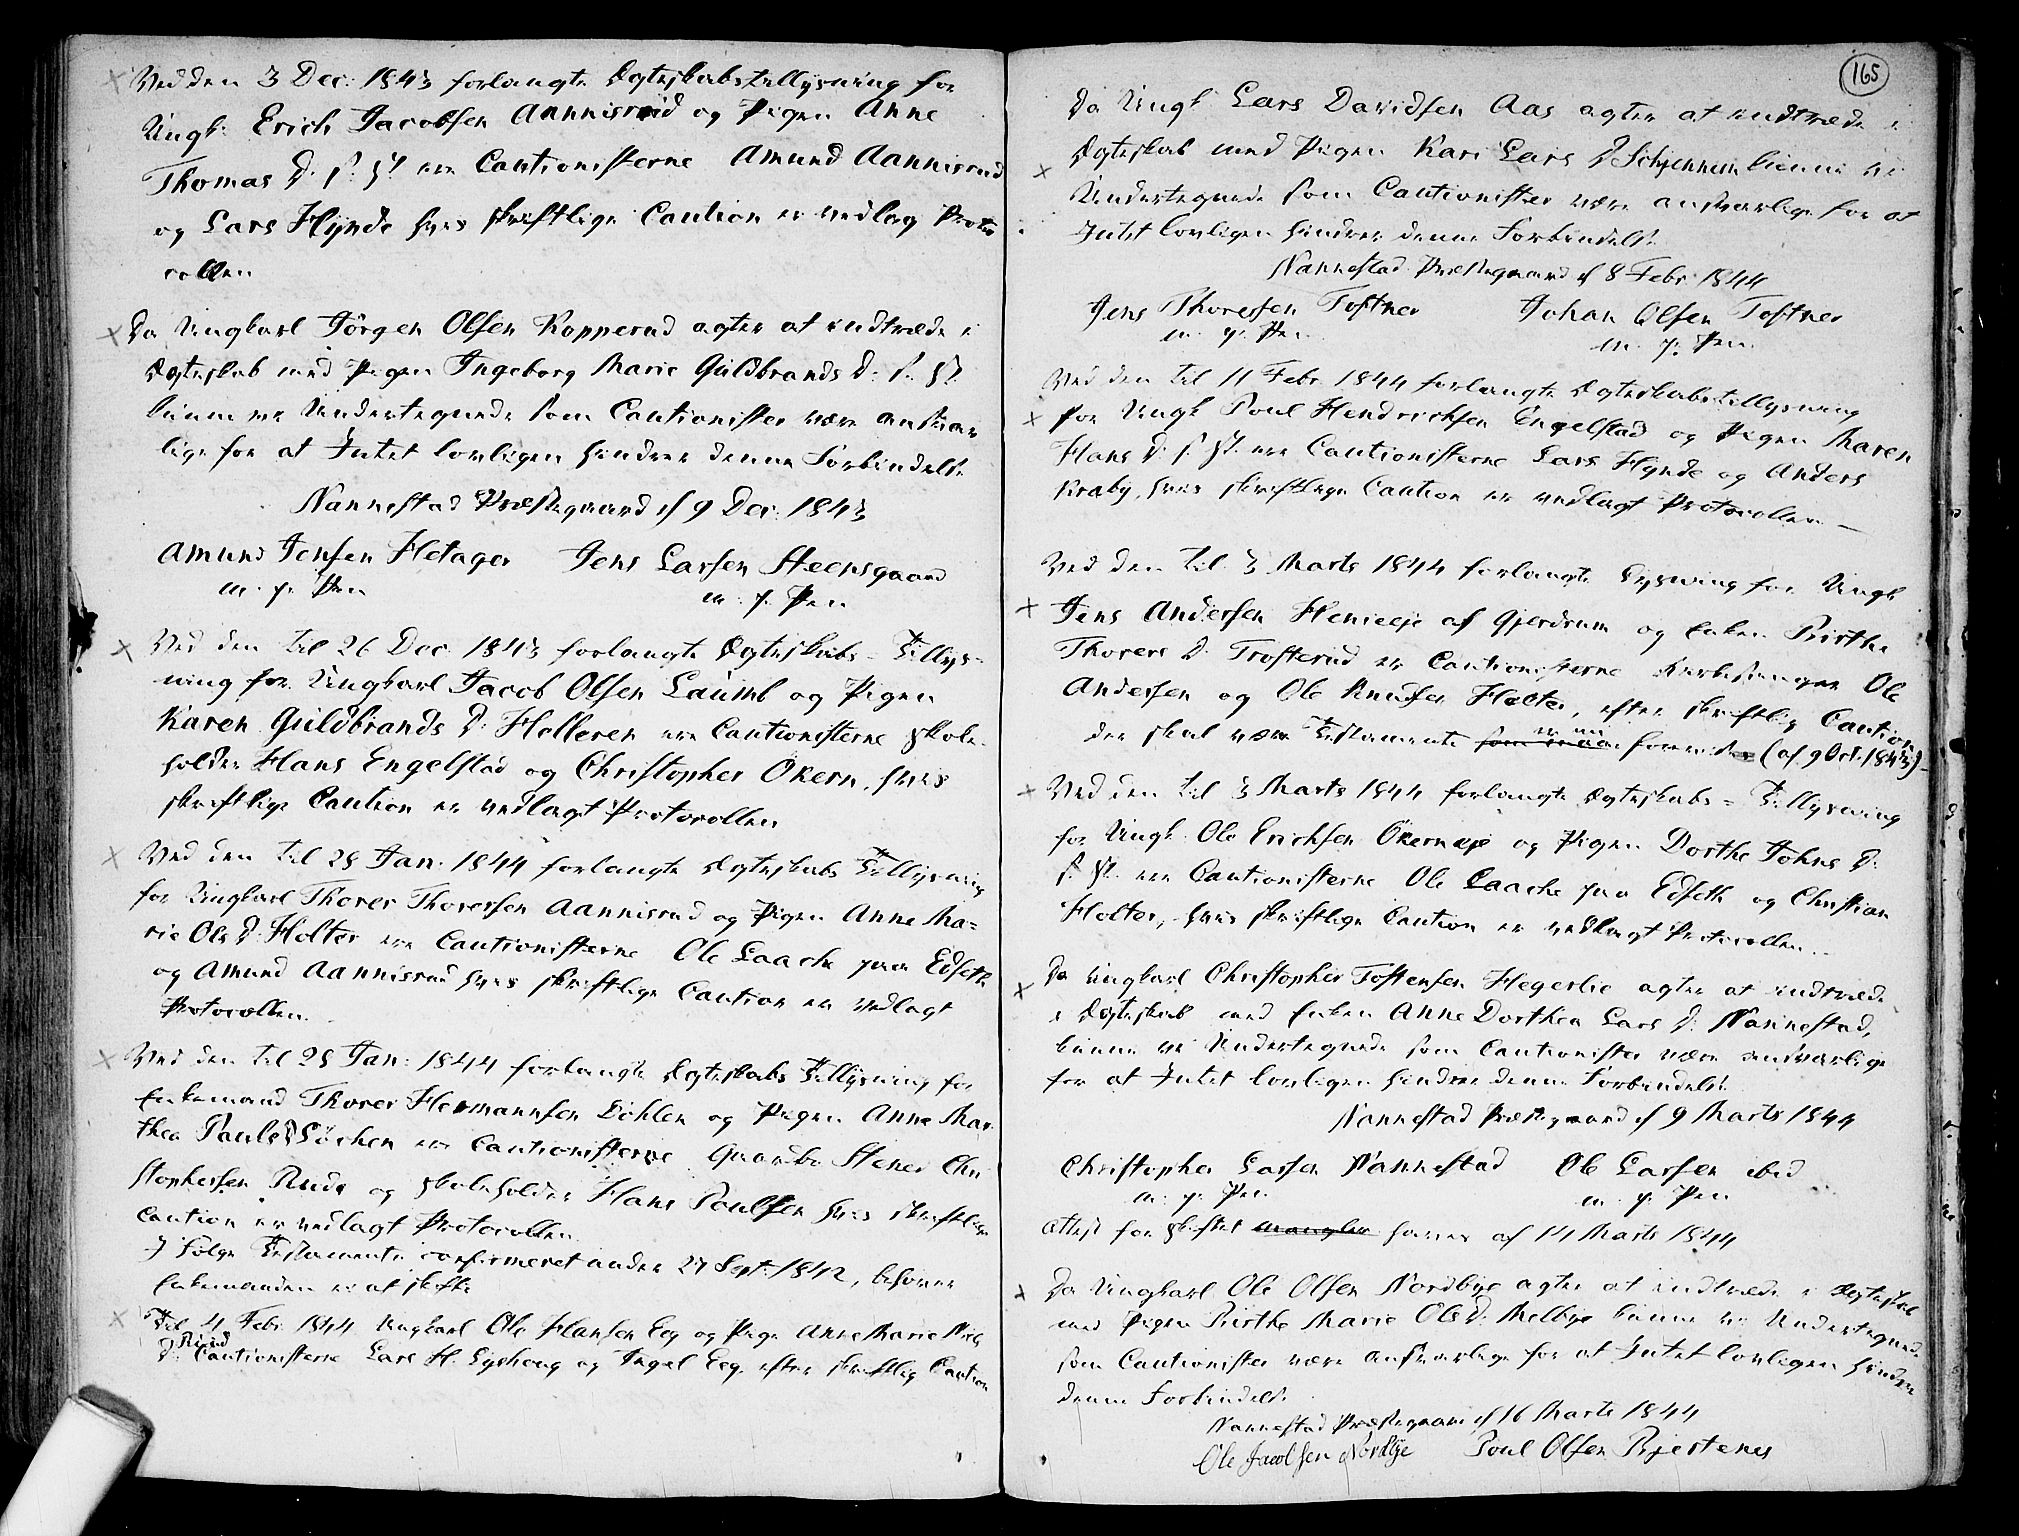 Ved den 3 Dec: 1843 forlangte Ægteskabstillysning for
Ungk: Erich Jacobsen Aannisrud og Pigen Anne
Thomas D. s. St. ere Cautionisterne Amund Aannisrud
og Lars Hynde hvis skriftlige Caution er vedlag Proto
collen
Da Ungkarl Jörgen Olsen Kopperud agter at indtræde i
Ægteskab med Pigen Ingeborg Marie Guldbrands D: s. St.
kunne vi Undertegnede som Cautionister være ansvar
lige for at Intet lovligen hindrer denne Forbindelse.
Nannestad Præstegaard d 9 Dec. 1843
Amund Jensen Hetager Jens Larsen Steensgaard
m. p. Pen m. p. Pen
Ved den til 26 Dec 1843 forlangte Ægteskabs-Tillys-
ning for Ungkarl Jacob Olsen Laumb og Pigen
Karen Guldbrands D: Helleren ere Cautionisterne Skole
holder Hans Engelstad og Christopher Okern, hvis
skriftlige Caution er vedlagt Protocollen
Ved den til 28 Jan: 1844 forlangte Ægteskabs Tillysning
for Ungkarl Thorer Thorersen Aannisrud og Pigen Anne Ma=
rie Ols D: Holter ere Cautionisterne Ole Laache paa Edseth
og Amund Aannisrud hvis skriftlige Caution er vedlagt
Protocollen.
Ved den til 28 Jan: 1844 forlangte Ægteskabs Tillysning for
Enkemand Thorer Hermannsen Döhlen og Pigen Anne Mar
thea Pauls D Löchen ere Cautionisterne Gaardbr Stener Chri
stophersen Rude og Skoleholder Hans Poulsen hvis skriftlige
Caution er vedlagt Protocollen.
I Følge Testamente confirmeret under 27 Sept: 1842, behöver
Enkemanden ei at skifte
Til 4 Febr 1844 Ungkarl Ole Hansen Eeg og Pige Anne Marie Niels
D: Ruud Cautionisterne Lars H. Lyshoug og Ingel Eeg efter skriftlig Caution
165
Da Ungk: Lars Davidsen Aas agter at indtræde i
Ægteskab med Pigen Kari Lars D Schjennum kunne vi
Undertegnede som Cautionister være ansvarlige for at
Intet lovligen hindrer denne Forbindelse.
Nannestad Præstegaard d 8 Febr 1844
Jens Thoresen Toftner Johan Olsen Toftner
m. p. Pen. m. p. Pen.
Ved den til 11 Febr 1844 forlangte Ægteskabstillysning
for Ungk Poul Hendrichsen Engelstad og Pigen Maren
Hans D: s. St. ere Cautionisterne Lars Hynde og Anders
Kraby, hvis skriftlige Caution er vedlagt Protocollen —
Ved den til 3 Marts 1844 forlangte Lysning for Ungk
Jens Andersen Henieeje af Gjerdrum og Enken Birthe
Thorers D: Trofterud er Cautionisterne Kirkesanger Ole
Andersen og Ole Knudsen Holter, efter skriftlig Caution
der skal være Testamente er nu foreviist (af 9 Oct. 1843)
Ved den til 3 Marts 1844 forlangte Ægteskabs = Tillysning
for Ungk. Ole Erichsen Okerneje og Pigen Dorthe Johns D:
s. St. ere Cautionisterne Ole Laache paa Edseth og Christian
Holter, hvis skriftlige Caution er vedlagt Protocollen..
Da Ungkarl Christopher Toftensen Hegerlie agter at indtræde
i Ægteskab med Enken Anne Dorthea Lars D: Nannestad,
kunne vi Undertegnede som Cautionister være ansvarlige
for at Intet lovligen hindrer denne Forbindelse.
Nannestad Præstegaard d 9 Marts 1844
Christopher Larsen Nannestad Ole Larsen ibid
m. p. Pen m. p. Pen
Attest for Skiftet mangler haves af 14 Marts 1844
Da Ungkarl Ole Olsen Nordbye agter at indtræde i Ægteskab
med Pigen Birthe Marie Ols D: Melbye kunne vi Undertegnede
som Cautionister være ansvarlige for at Intet lovligen hindrer
denne Forbindelse.
Nannestad Præstegaard d 16 Marts 1844
Ole Jacobsen Nordbye Poul Olsen Bjertenes